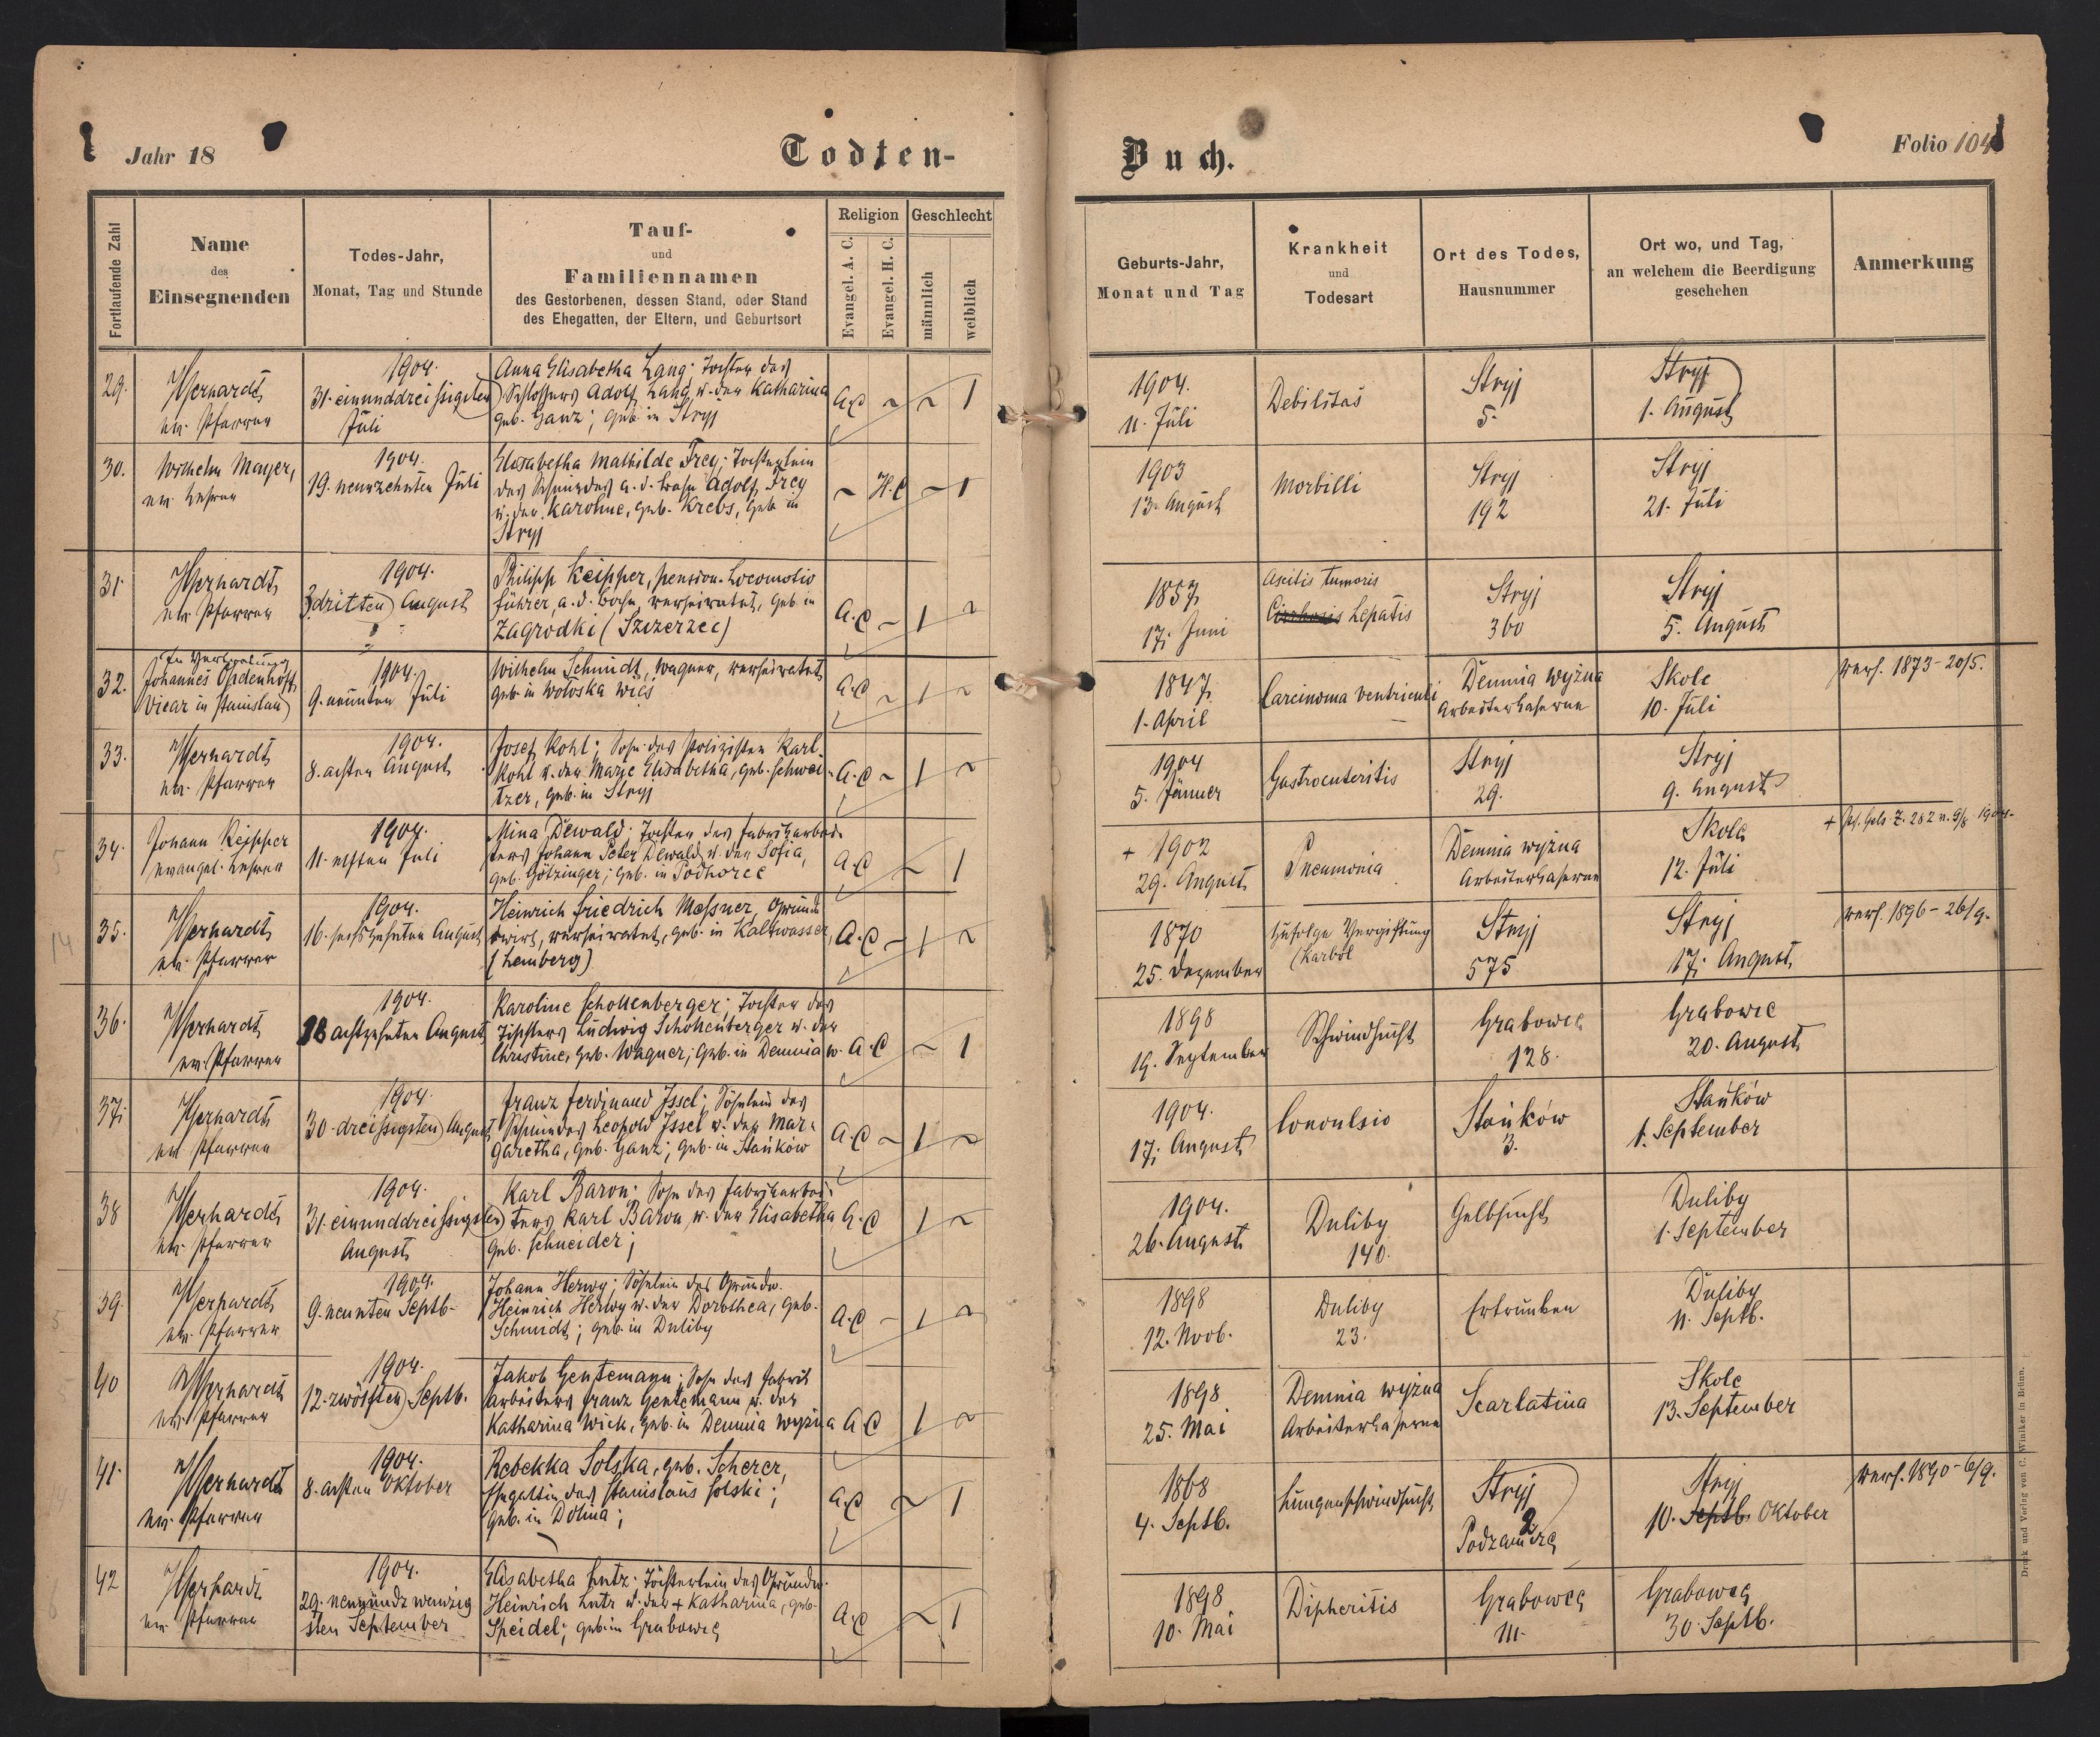 Jahr 18
Todten-
Buch.
Folio 104
Fortlaufende Zahl
Name
des
Einsegnenden
Todes-Jahr,
Monat, Tag und Stunde
Tauf-
und
Familiennamen
des Gestorbenen, dessen Stand, oder Stand
des Ehegatten, der Eltern, und Geburtsort
Religion
Evangel. A. C.
Evangel. H. C.
Geschlecht
männlich
weiblich
Geburts-Jahr,
Monat und Tag
Krankheit
und
Todesart
Ort des Todes,
Hausnummer
Ort wo, und Tag,
an welchem die Beerdigung
geschehen
Anmerkung
29.
ev. Pfarrer
1904.
31. einunddreissigsten
Juli
Anna Elisabetha Lang; Tochter des
Schlossers Adolf Lang u. der Katharina
geb. Ganz; geb. in Stryj
A.C ~ ~ 1
1904.
11. Juli
Debilitas
Stryj
5.
Stryj
1. August
30.
Wilhelm Mayer,
ev. Lehrer
1904.
19. neunzehnten Juli
Elisabetha Mathilde Frey; Töchterlein
des Schmiedes a. d. Bahn Adolf Frey
u. der Karoline, geb. Krebs, geb. in
Stryj
~ H.C ~ 1
1903
13. August
Morbilli
Stryj
192
Stryj
21. Juli
31.
ev. Pfarrer
1904.
3. dritten August
Philipp Keipper, pension. Locomotiv
führer, a. d. Bahn, verheiratet, geb. in
Zagrodki (Szczerzec)
A.C ~ 1 ~
1857
17. Juni
Ascitis tumoris
hepatis
Stryj
360
Stryj
5. August
32.
In Vertretung
Johannes
Vicar in Stanislau
1904.
9. neunten Juli
Wilhelm Schmidt, Wagner, verheiratet
geb. in Woloska wies
A.C ~ 1 ~
1847
1. April
Carcinoma ventriculi
Demnia wyżna
Arbeiterkaserne
Skole
10. Juli
verh. 1873 - 20/5.
33.
ev. Pfarrer
1904.
8. achten August
Josef Kohl; Sohn des Polizisten Karl
Kohl u. der Marie Elisabetha, geb. Schwei-
tzer, geb. in Stryj
A.C ~ 1 ~
1904
5. Jänner
Gastroenteritis
Stryj
29.
Stryj
9. August
34.
Johann Keipper
evangel. Lehrer
1904.
11. elften Juli
Mina Dewald; Tochter des Fabrikarbei-
ters Johann Peter Dewald u. der Sofia,
geb. Götzinger; geb. in Podhorce
A.C ~ 1
+ 1902
29. August
Pneumonia
Demnia wyżna
Arbeiterkaserne
Skole
12. Juli
35.
ev. Pfarrer
1904.
16. sechszehnten August
Heinrich Friedrich Messner, Grund
wirt, verheiratet, geb. in Kaltwasser
(Lemberg)
A.C ~ 1 ~
1870
25. Dezember
Zufolge Vergiftung
(Karbol
Stryj
575
Stryj
17. August
verh. 1896 - 26/9.
36.
ev. Pfarrer
1904.
18 achtzehnten August
Karoline Schollenberger; Tochter des
Tischlers Ludwig Schollenberger u. der
Christine, geb. Wagner; geb. in Demnia w.
A.C ~ 1
1898
19. September
Schwindsucht
Grabowce
128.
Grabowce
20. August
37.
ev. Pfarrer
1904.
30. dreissigsten August
Franz Ferdinand Issel; Söhnlein des
Schmiedes Leopold Issel u. der Mar-
garetha, geb. Ganz; geb. in Stańków
A.C ~ 1 ~
1904.
17. August
Convulsio
Stańków
3.
Stańków
1. September
38
ev. Pfarrer
1904.
31. einunddreissigsten
August
Karl Baron: Sohn des Fabrikarbei-
ters Karl Baron u. der Elisabetha
geb. Schneider;
A.C 1 ~
1904.
26. August
Duliby
140.
Gelbsucht
Duliby
1. September
39.
ev. Pfarrer
1904.
9. neunten Septb.
Johann Herwy; Söhnlein des Grundw.
Heinrich Herwy u. der Dorothea, geb.
Schmidt; geb. in Duliby
A.C ~ 1 ~
1898
12. Novb.
Duliby
23.
Ertrunken
Duliby
11. Septb.
40
ev. Pfarrer
1904.
12. zwölften Septb.
Jakob Gentemann; Sohn des Fabrik
arbeiters Franz Gentemann u. der
Katharina Wick, geb. in Demnia wyżna
A.C 1 ~
1898
25. Mai
Demnia wyżna
Arbeiterkaserne
Scarlatina
Skole
13. September
41.
ev. Pfarrer
1904.
8. achten Oktober
Rebekka Solska, geb. Scherer,
Ehegattin des Stanislaus Solski;
geb. in Dolina;
A.C ~ 1
1868
4. Septb.
Lungenschwindsucht
Stryj
2
Podzamcze
Stryj
10. Septb. Oktober
verh. 1890 - 6/9.
42
ev. Pfarrer
1904.
29. neunundzwanzig
sten September
Elisabetha Lutz; Töchterlein des Grundw.
Heinrich Lutz u. der + Katharina, geb.
Speidel; geb. in Grabowce
A.C ~ 1
1898
10. Mai
Dipheritis
Grabowce
111.
Grabowce
30. Septb.
Druck und Verlag von C. Winiker in Brünn.